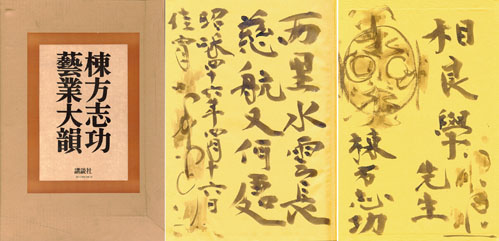 棟方志功
藝業大韻
講談社
相良學
先生
棟方志功
万里水雲長
慈航又何處
昭和四十六年四月十六日
佳宵